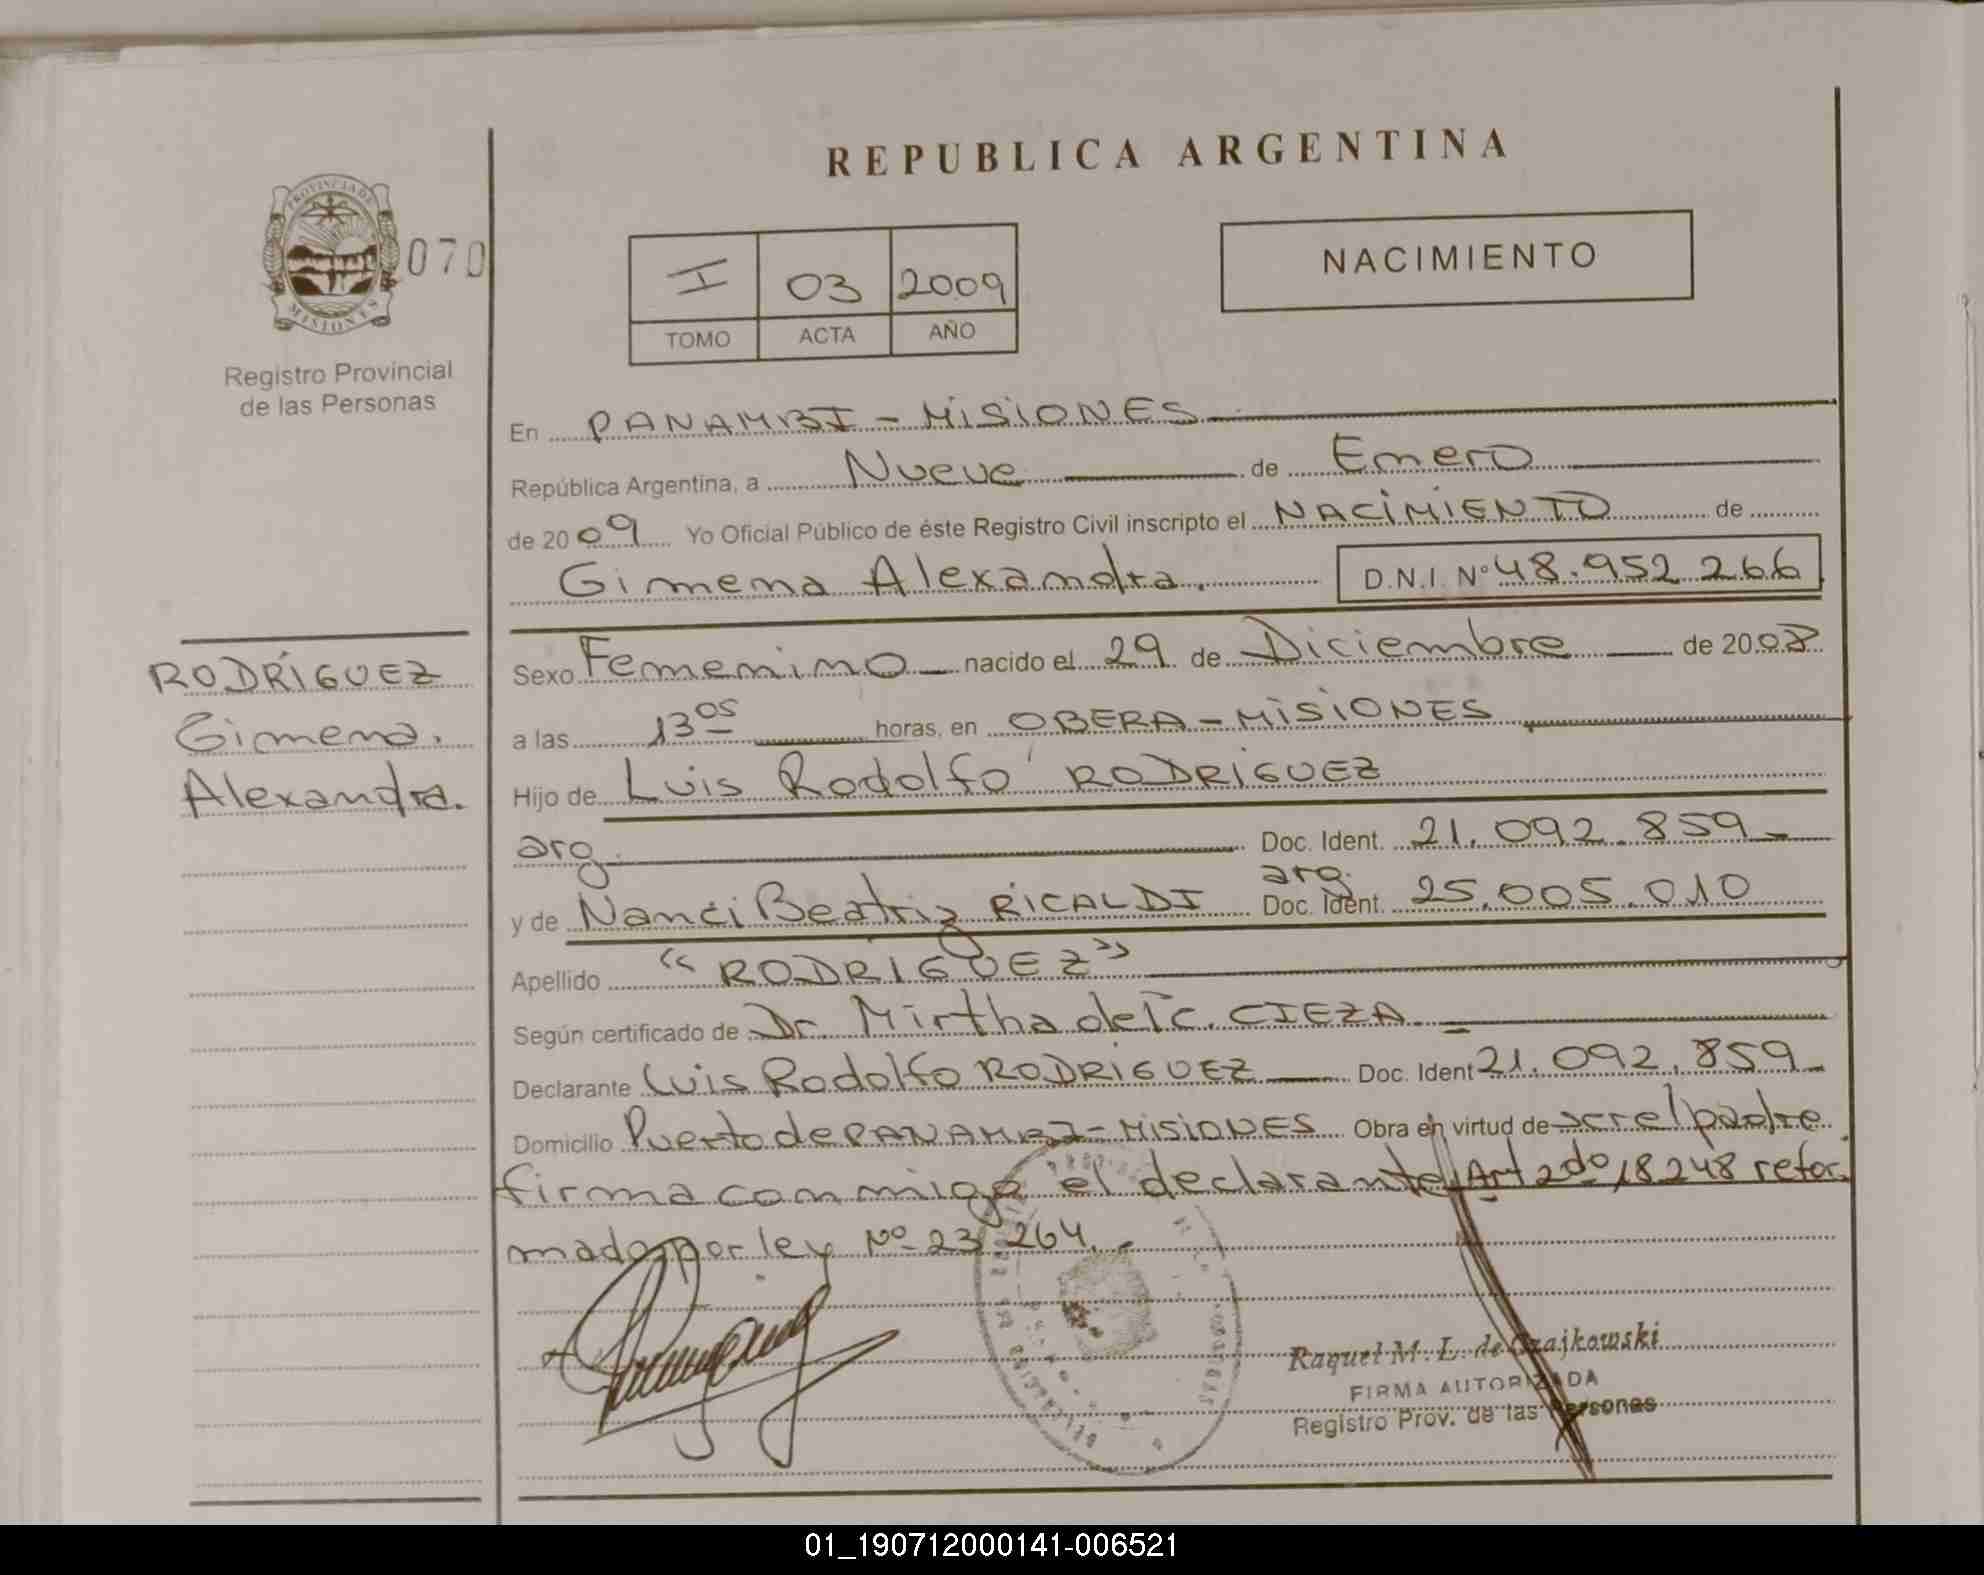 REPUBLICA ARGENTINA
PROVINCIA DE
MISIONES
070
Registro Provincial
de las Personas
I 03 2009
TOMO ACTA AÑO
NACIMIENTO
En PANAMBI - MISIONES
República Argentina, a Nueve de Enero
de 2009 Yo Oficial Público de éste Registro Civil inscripto el NACIMIENTO de
Gimena Alexandra. D.N.I. Nº 48.952 266
RODRÍGUEZ
Gimena.
Alexandra.
Sexo Femenino nacido el 29 de Diciembre de 2008
a las 13 05 horas, en OBERA - MISIONES
Hijo de Luis Rodolfo RODRIGUEZ
arg. Doc. Ident. 21.092.859
arg.
y de Nanci Beatriz RICALDI Doc. Ident. 25.005.010
Apellido "RODRIGUEZ"
Según certificado de Dr. Mirtha del C. CIEZA
Declarante Luis Rodolfo RODRIGUEZ Doc. Ident 21.092.859
Domicilio Puerto de PANAMBI - MISIONES Obra en virtud de ser el padre
firma conmigo el declarante Art 2do 18248 refor
mado por ley Nº 23.264.
Raquel M. L. de Czajkowski
FIRMA AUTORIZADA
Registro Prov. de las Personas
01_190712000141-006521